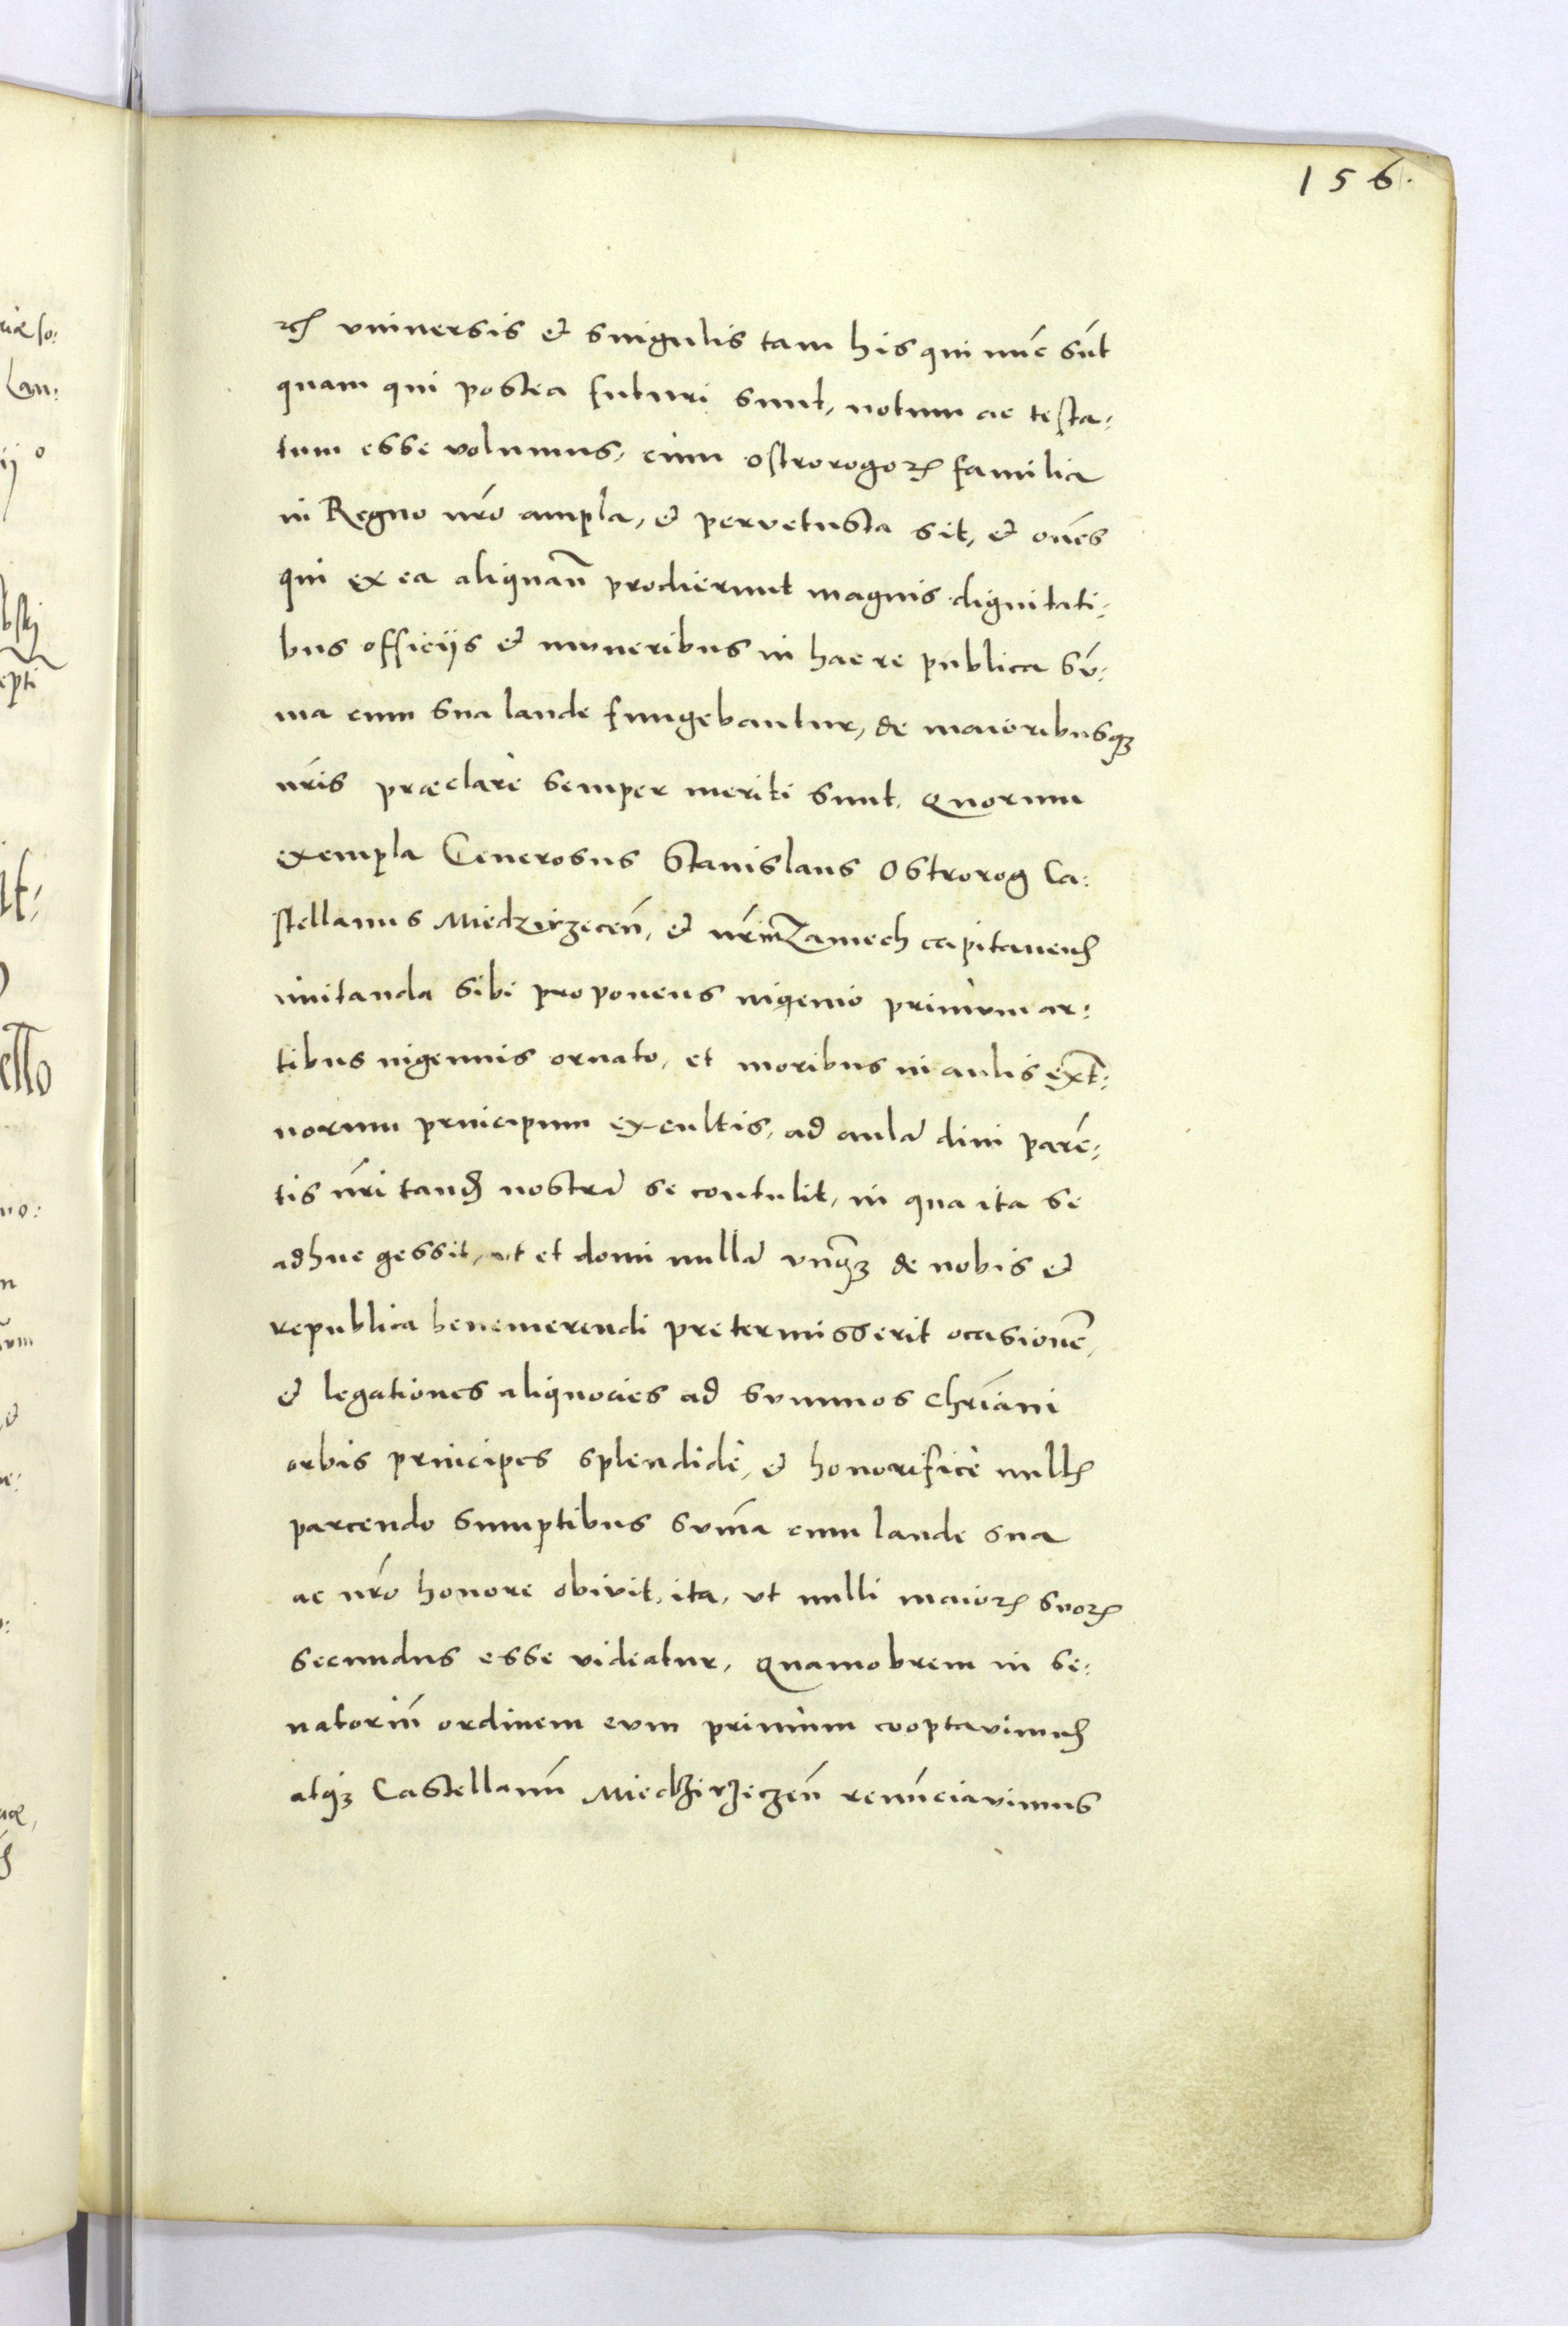 156.
rum vniuersis et singulis tam his qui nũc sũt
quam qui postea futuri sunt, notum ac testa:
tum esse volumus, cum Ostrorogorum familia
in Regno nr̃o ampla, et pervetusta sit, et om̃es
qui ex ea aliquañ prodierunt magnis dignitati:
bus officijs et muneribus in hac re publica sũ:
ma cum sua laude fungebantur, de maioribusqȝ
nr̃is præclarè semper meriti sunt. Quorum
exempla Generosus Stanislaus Ostrorog Ca:
stellanus Miedzirzeceñ, et nr̃ in Zamech capitaneus
imitanda sibi proponens ingenio primum ar:
tibus ingenuis ornato, et moribus in aulis ext̃:
norum principum excultis, ad aulã diui parẽ:
tis nr̃i tandẽ nostrã se contulit, in qua ita se
adhuc gessit, ut et domi nullã vnqȝ de nobis et
republica benemerendi pretermisserit ocasionẽ,
et legationes aliquocies ad summos Chr̃iani
orbis principes splendidè, et honorificè nullis
parcendo sumptibus sum̃a cum laude sua
ac nr̃o honore obivit, ita, vt nulli maiorum suorum
secundus esse videatur. Quamobrem in se:
natoriũ ordinem eum primum cooptavimus
atqȝ Castellanũ Miedzirzeczeñ renũciavimus
riæ so:
Lan:
ij o
bskj
epti
lt:
ello
no:
n
rum
et